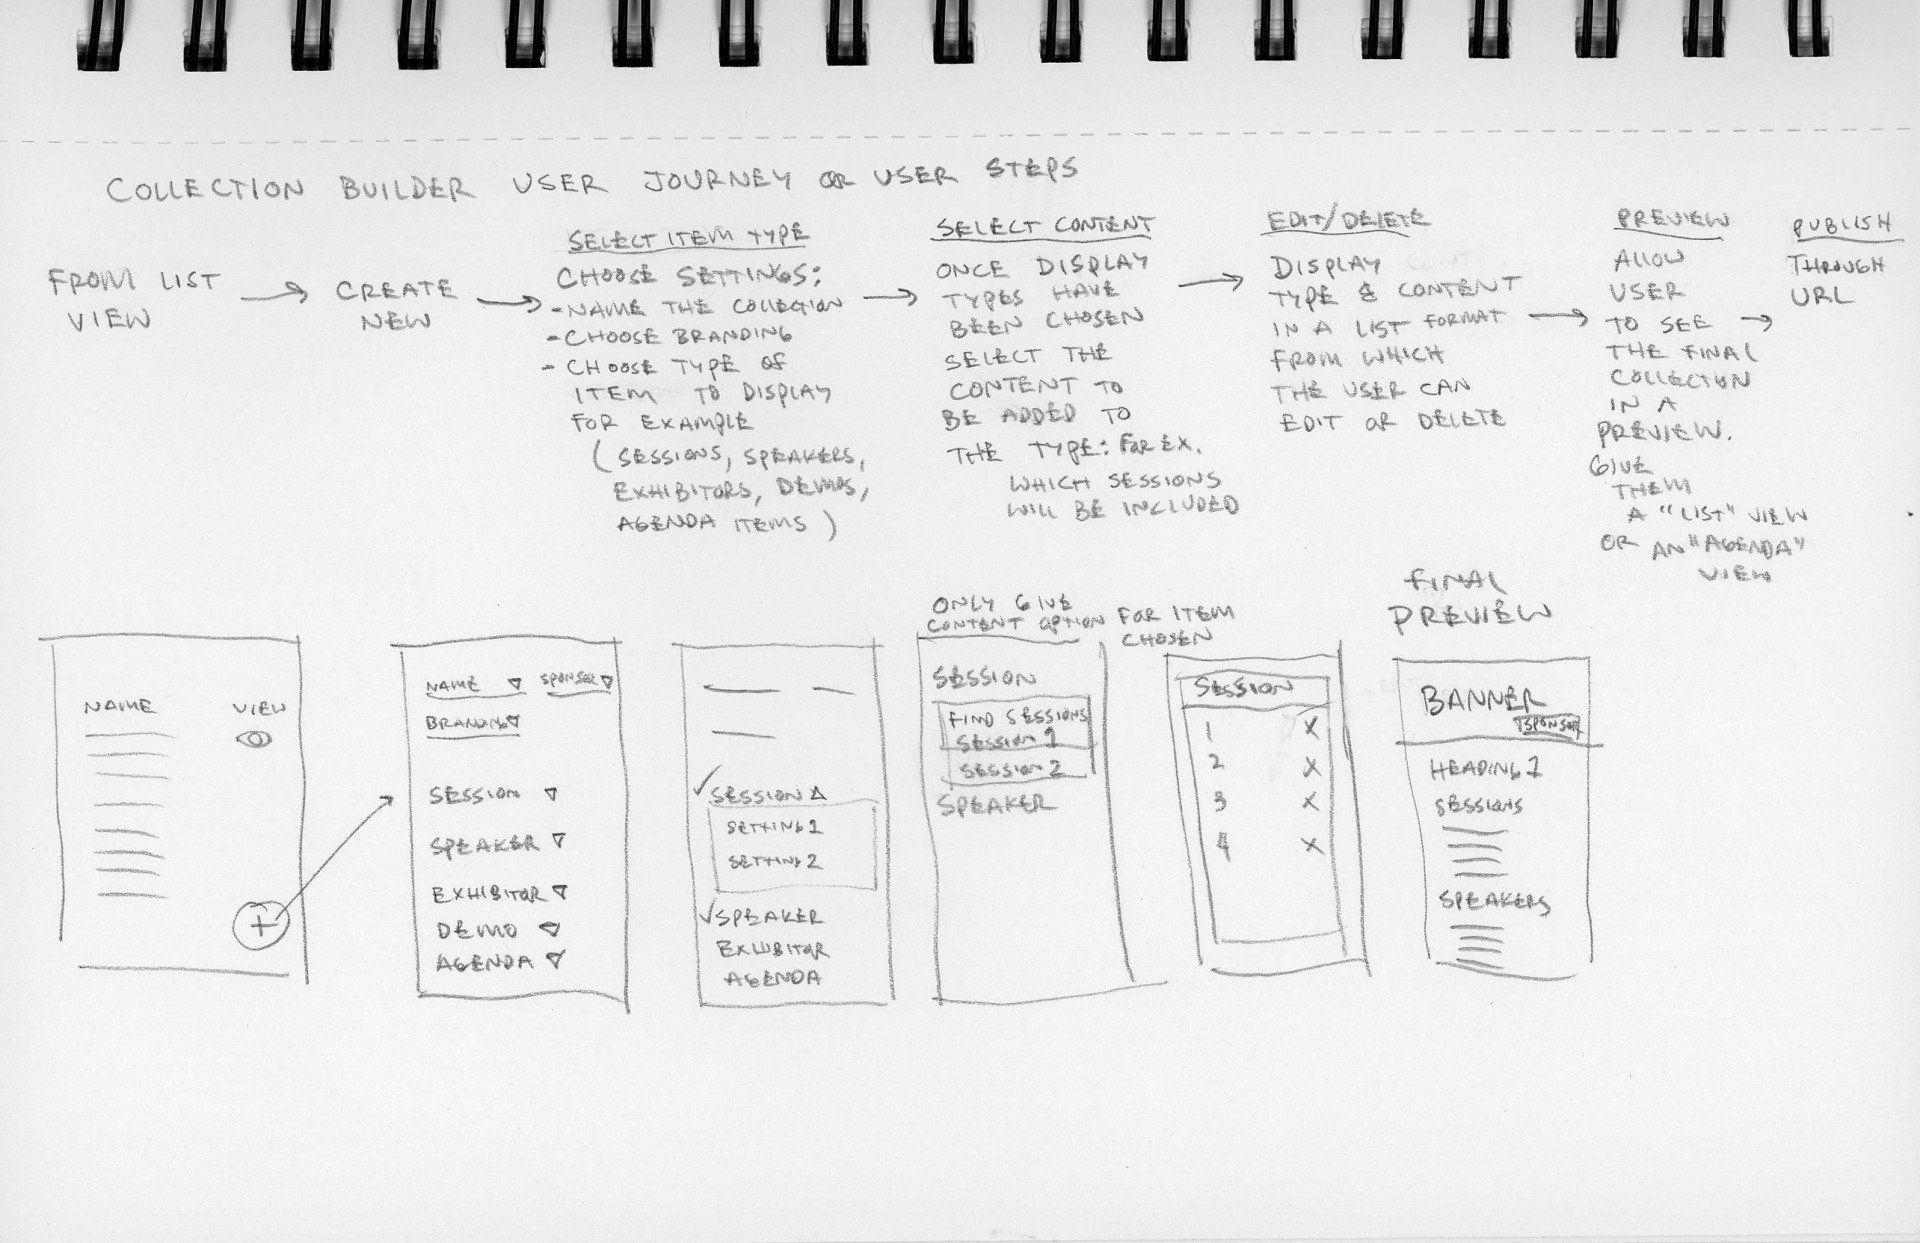 COLLECTION BUILDER USER JOURNEY OR USER STEPS
FROM LIST
VIEW
CREATE
NEW
SELECT ITEM TYPE
CHOOSE SETTINGS:
- NAME THE COLLECTION
- CHOOSE BRANDING
- CHOOSE TYPE OF
ITEM TO DISPLAY
FOR EXAMPLE
(SESSIONS, SPEAKERS,
EXHIBITORS, DEMOS,
AGENDA ITEMS)
SELECT CONTENT
ONCE DISPLAY
TYPES HAVE
BEEN CHOSEN
SELECT THE
CONTENT TO
BE ADDED TO
THE TYPE: FOR EX.
WHICH SESSIONS
WILL BE INCLUDED
EDIT/DELETE
DISPLAY
TYPE & CONTENT
IN A LIST FORMAT
FROM WHICH
THE USER CAN
EDIT OR DELETE
PREVIEW
ALLOW
USER
TO SEE
THE FINAL
COLLECTION
IN A
PREVIEW.
GIVE
THEM
A "LIST" VIEW
OR AN "AGENDA"
VIEW
PUBLISH
THROUGH
URL
NAME VIEW
+
NAME SPONSER
BRANDING
SESSION
SPEAKER
EXHIBITOR
DEMO
AGENDA
SESSION
SETTING 1
SETTING 2
SPEAKER
EXHIBITOR
AGENDA
ONLY GIVE
CONTENT OPTION FOR ITEM
CHOSEN
SESSION
FIND SESSIONS
SESSION 1
SESSION 2
SPEAKER
SESSION
1 X
2 X
3 X
4 X
FINAL
PREVIEW
BANNER
SPONSER
HEADING 1
SESSIONS
SPEAKERS